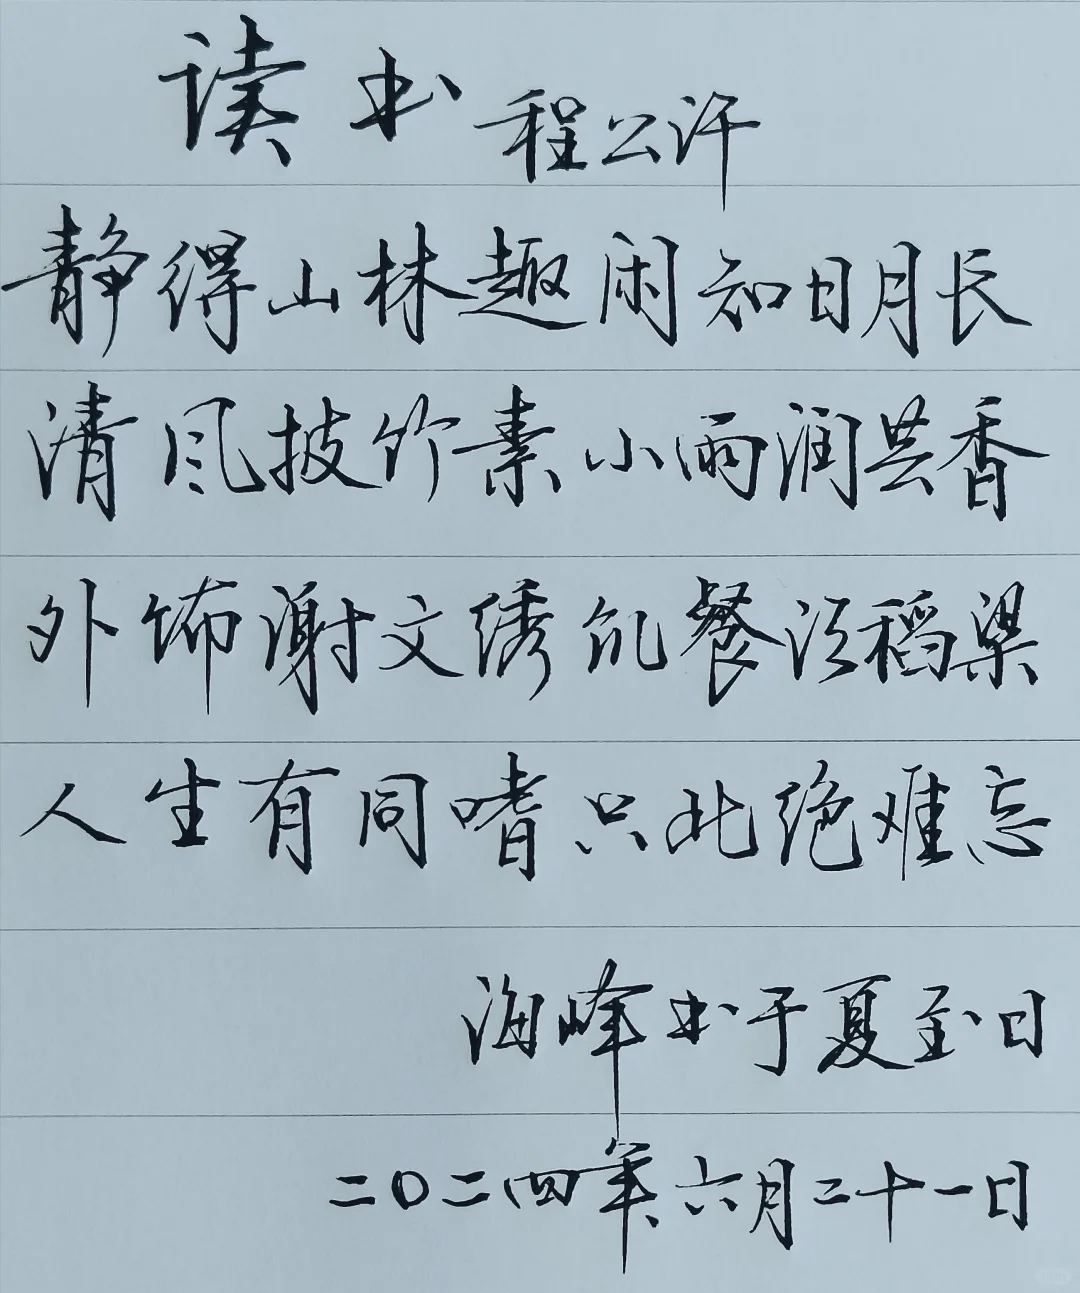 读书 程公许
静得山林趣闲知日月长
清风披竹素小雨润芸香
外饰谢文绣饥餐须稻梁
人生有同嗜只此绝难忘
海峰书于夏至日
二〇二四年六月二十一日